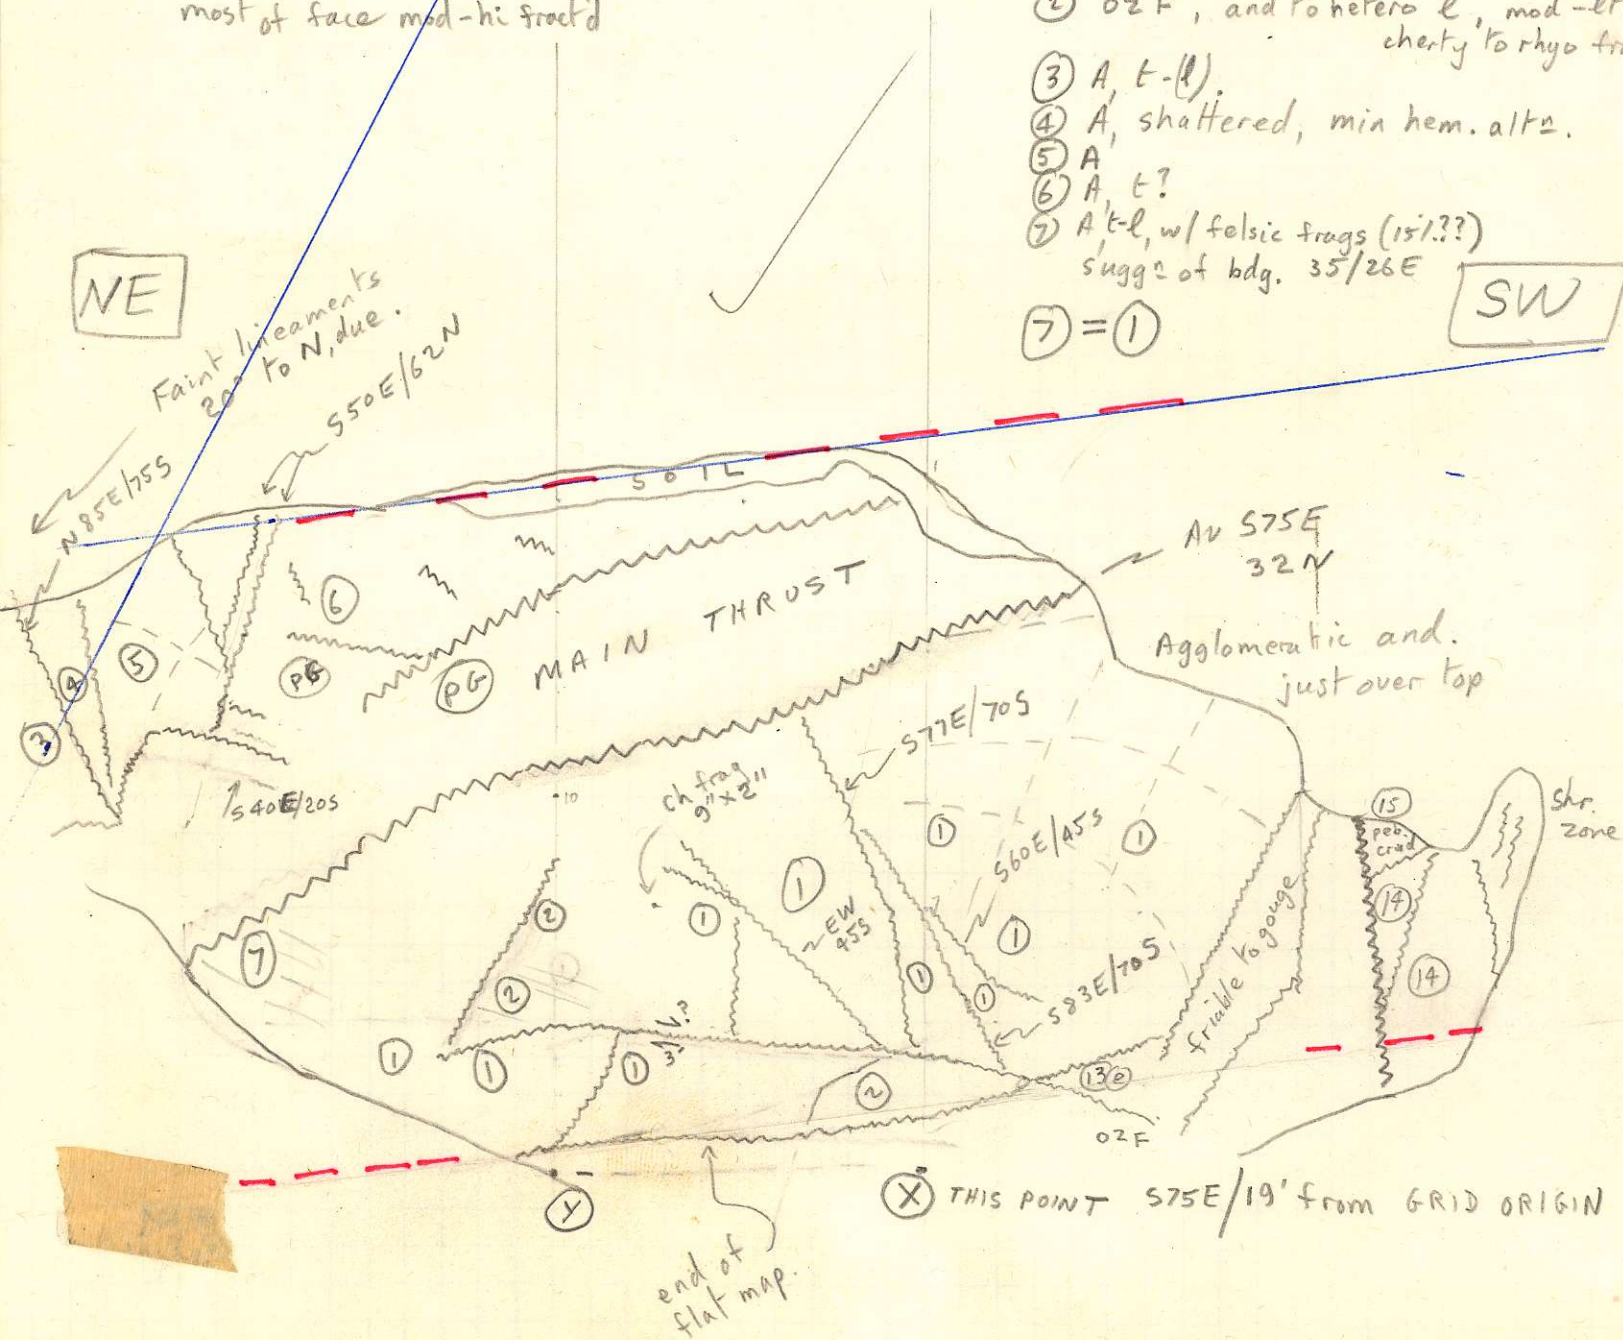 most of face mod-hi fract'd
② O2F, and to hetero l, mod-
cherty to rhyo
③ A, t-(l).
④ A, shattered, min hem. altn.
⑤ A
⑥ A, t?
⑦ A, t-l, w/ felsic frags (15%??)
suggn of bdg. 35/26E
⑦ = ①
NE
SW
Faint lineaments
20° to N, due.
S50E/62N
N85E/75S
SOIL
Av S75E
32N
MAIN THRUST
Agglomeratic and.
just over top
③
④
⑤
⑥
PG
PG
S40E/20S
10
ch frag
9"x2"
S77E/70S
S60E/45S
EW
45S
S83E/70S
friable to gouge
⑮
peb.
⑭
⑭
Shr.
zone
⑦
②
②
①
①
①
①
①
①
①
①
①
①
②
13e
O2F
Y
X THIS POINT S75E/19' from GRID ORIGIN
end of
flat map.